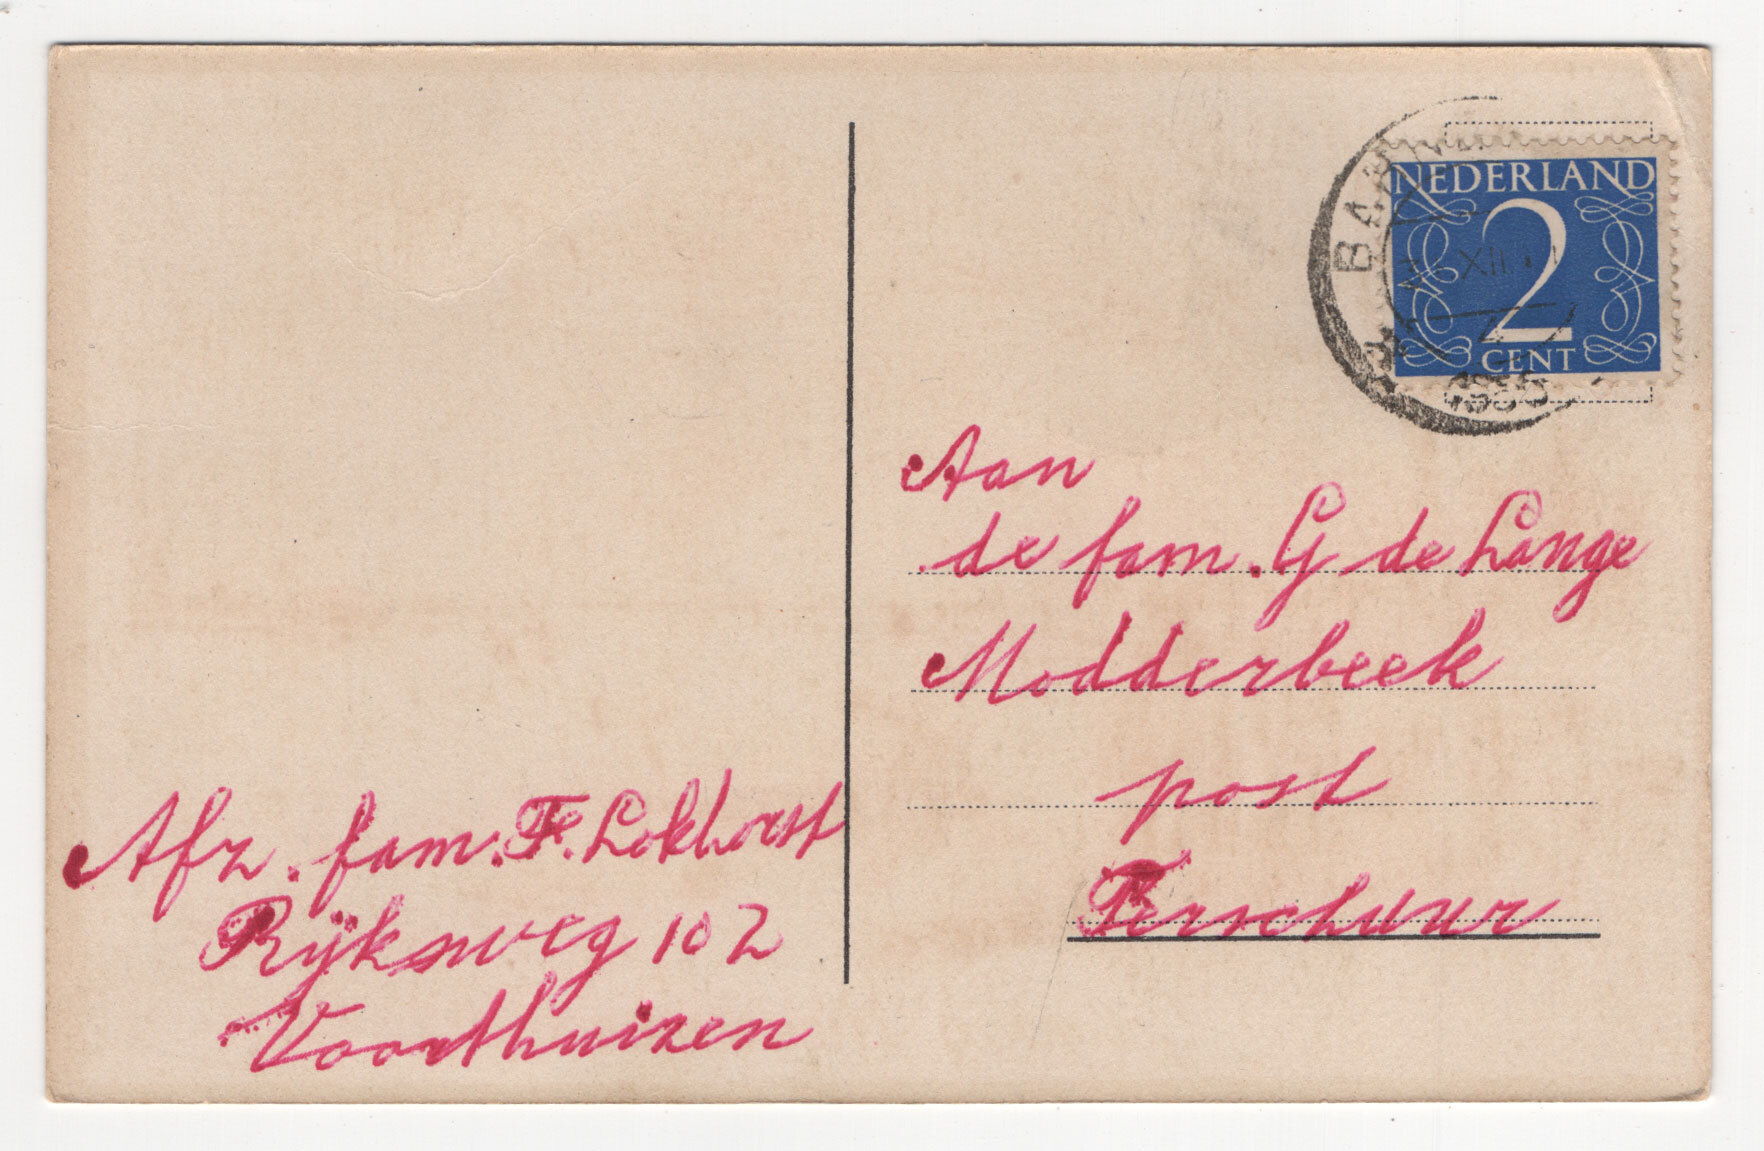 NEDERLAND
2
CENT
XII
Aan
de fam. G de Lange
Modderbeek
post
Terschuur
Afz. fam. F. Lokhorst
Rijksweg 102
Voorthuizen